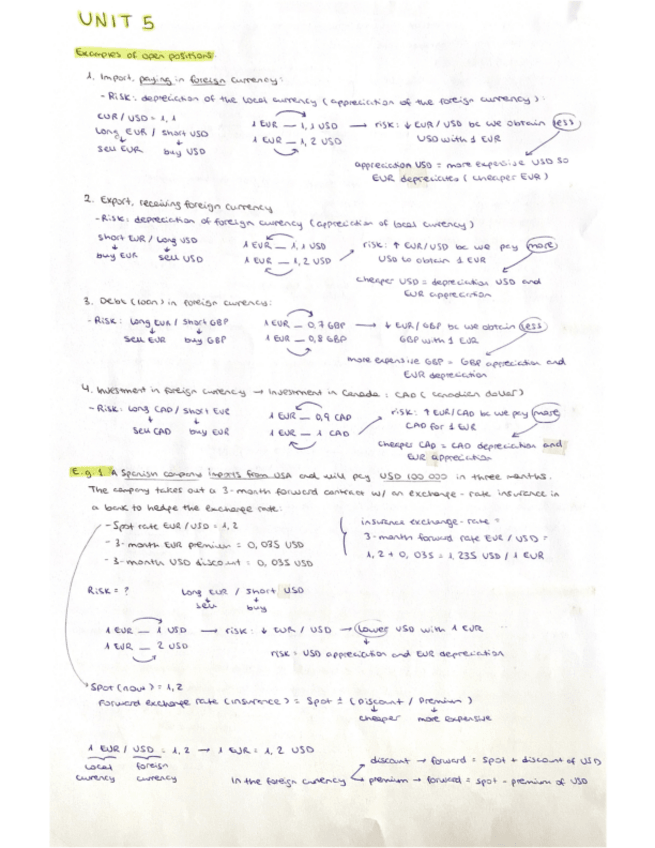 UNIT 5
Examples of open positions:
1. Import, paying in foreign currency:
- Risk: depreciation of the local currency (appreciation of the foreign currency):
EUR/USD = 1,1
Long EUR / short USD
sell EUR buy USD
1 EUR — 1,1 USD → risk: ↓ EUR/USD bc we obtain less
1 EUR — 1,2 USD USD with 1 EUR
appreciation USD = more expensive USD so
EUR depreciates (cheaper EUR)
2. Export, receiving foreign currency
- Risk: depreciation of foreign currency (appreciation of local currency)
Short EUR / Long USD
buy EUR sell USD
1 EUR — 1,1 USD risk: ↑ EUR/USD bc we pay more
1 EUR — 1,2 USD USD to obtain 1 EUR
cheaper USD = depreciation USD and
EUR appreciation
3. Debt (loan) in foreign currency:
- Risk: Long EUR / Short GBP 1 EUR — 0,7 GBP → ↓ EUR/GBP bc we obtain less
sell EUR buy GBP 1 EUR — 0,8 GBP GBP with 1 EUR
more expensive GBP = GBP appreciation and
EUR depreciation
4. Investment in foreign currency → Investment in Canada: CAD (canadian dollar)
- Risk: Long CAD / Short EUR 1 EUR — 0,9 CAP risk: ↑ EUR/CAD bc we pay more
sell CAD buy EUR 1 EUR — 1 CAD CAD for 1 EUR
cheaper CAD = CAD depreciation and
EUR appreciation
E.g. 1 A Spanish company imports from USA and will pay USD 100 000 in three months.
The company takes out a 3-month forward contract w/ an exchange-rate insurance in
a bank to hedge the exchange rate:
- Spot rate EUR/USD = 1,2
- 3-month EUR premium = 0,035 USD
- 3-month USD discount = 0,035 USD
insurance exchange-rate =
3-month forward rate EUR/USD =
1,2 + 0,035 = 1,235 USD / 1 EUR
Risk = ? Long EUR / Short USD
sell buy
1 EUR — 1 USD → risk: ↓ EUR / USD → Lower USD with 1 EUR
1 EUR — 2 USD
risk = USD appreciation and EUR depreciation
Spot (now) = 1,2
Forward exchange rate (insurance) = Spot ± (Discount / Premium)
cheaper more expensive
1 EUR / USD = 1,2 → 1 EUR = 1,2 USD
Local currency foreign currency
In the foreign currency
discount → forward = spot + discount of USD
premium → forward = spot - premium of USD